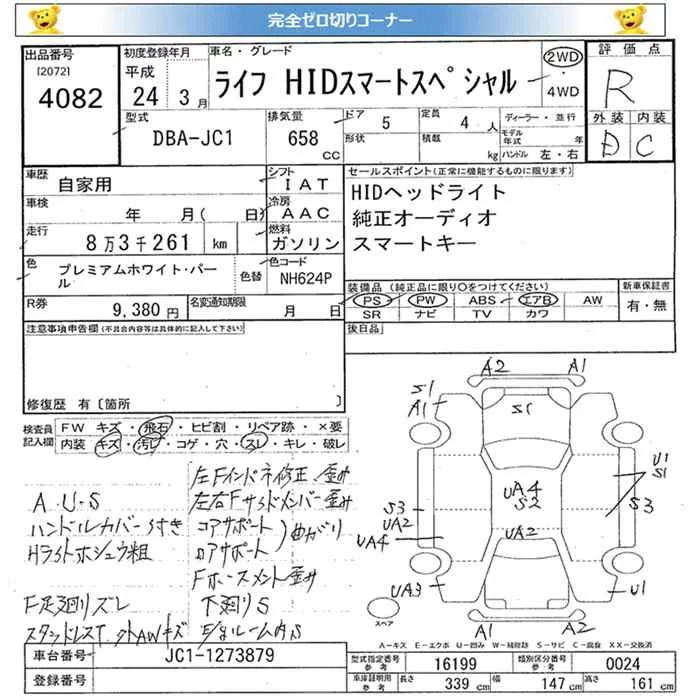 完全ゼロ切りコーナー
出品番号
[2072]
4082
初度登録年月
平成
24 年 3 月
車名・グレード
ライフ HIDスマートスペシャル
2WD
・
4WD
評価点
R
外装 内装
D C
型式
DBA-JC1
排気量
658
CC
ドア
5
形状
定員
4 人
積載
kg
ディーラー・並行
モデル
年式 年
ハンドル 左・右
車歴
自家用
シフト
IAT
車検
年 月( 日)
冷房
AAC
走行
8万3千261 km
燃料
ガソリン
色
プレミアムホワイト・パー
ル
色替
色コード
NH624P
R券
9,380 円
名変通知期限
月 日
セールスポイント(正常に機能するものに限ります)
HIDヘッドライト
純正オーディオ
スマートキー
装備品 (純正品に限り○をつけてください)
PS PW ABS エアB AW
SR ナビ TV カワ
新車保証書
有・無
後日品
注意事項申告欄(不具合内容等は具体的に記入して下さい)
修復歴 有〔箇所 〕
検査員
記入欄
FW キズ・飛石・ヒビ割・リペア跡・×要
内装 キズ・汚レ・コゲ・穴・スレ・キレ・破レ
A U・S
ハンドルカバー付き
Hライトホシュウ粗
F足廻りズレ
スタッドレスT 外AWキズ
左Fインパネ修正、歪み
左右Fサイドメンバー歪み
コアサポート
ロアサポート
曲がり
Fホースメント歪み
下廻りS
E/gルーム内S
A2 A1
S1
A1
S1
U1
S1
UA4
S2
S3
S3
UA2
UA4
UA2
UA3
U1
A1 A2
スペア
A-キズ E-エクボ U-凹み W-補修跡 S-サビ C-腐食 XX-交換済
車台番号
JC1-1273879
登録番号
型式指定番号
参考
16199
類別区分番号
参考
0024
車庫証明用
参考
長さ 339 cm
幅 147 cm
高さ 161 cm